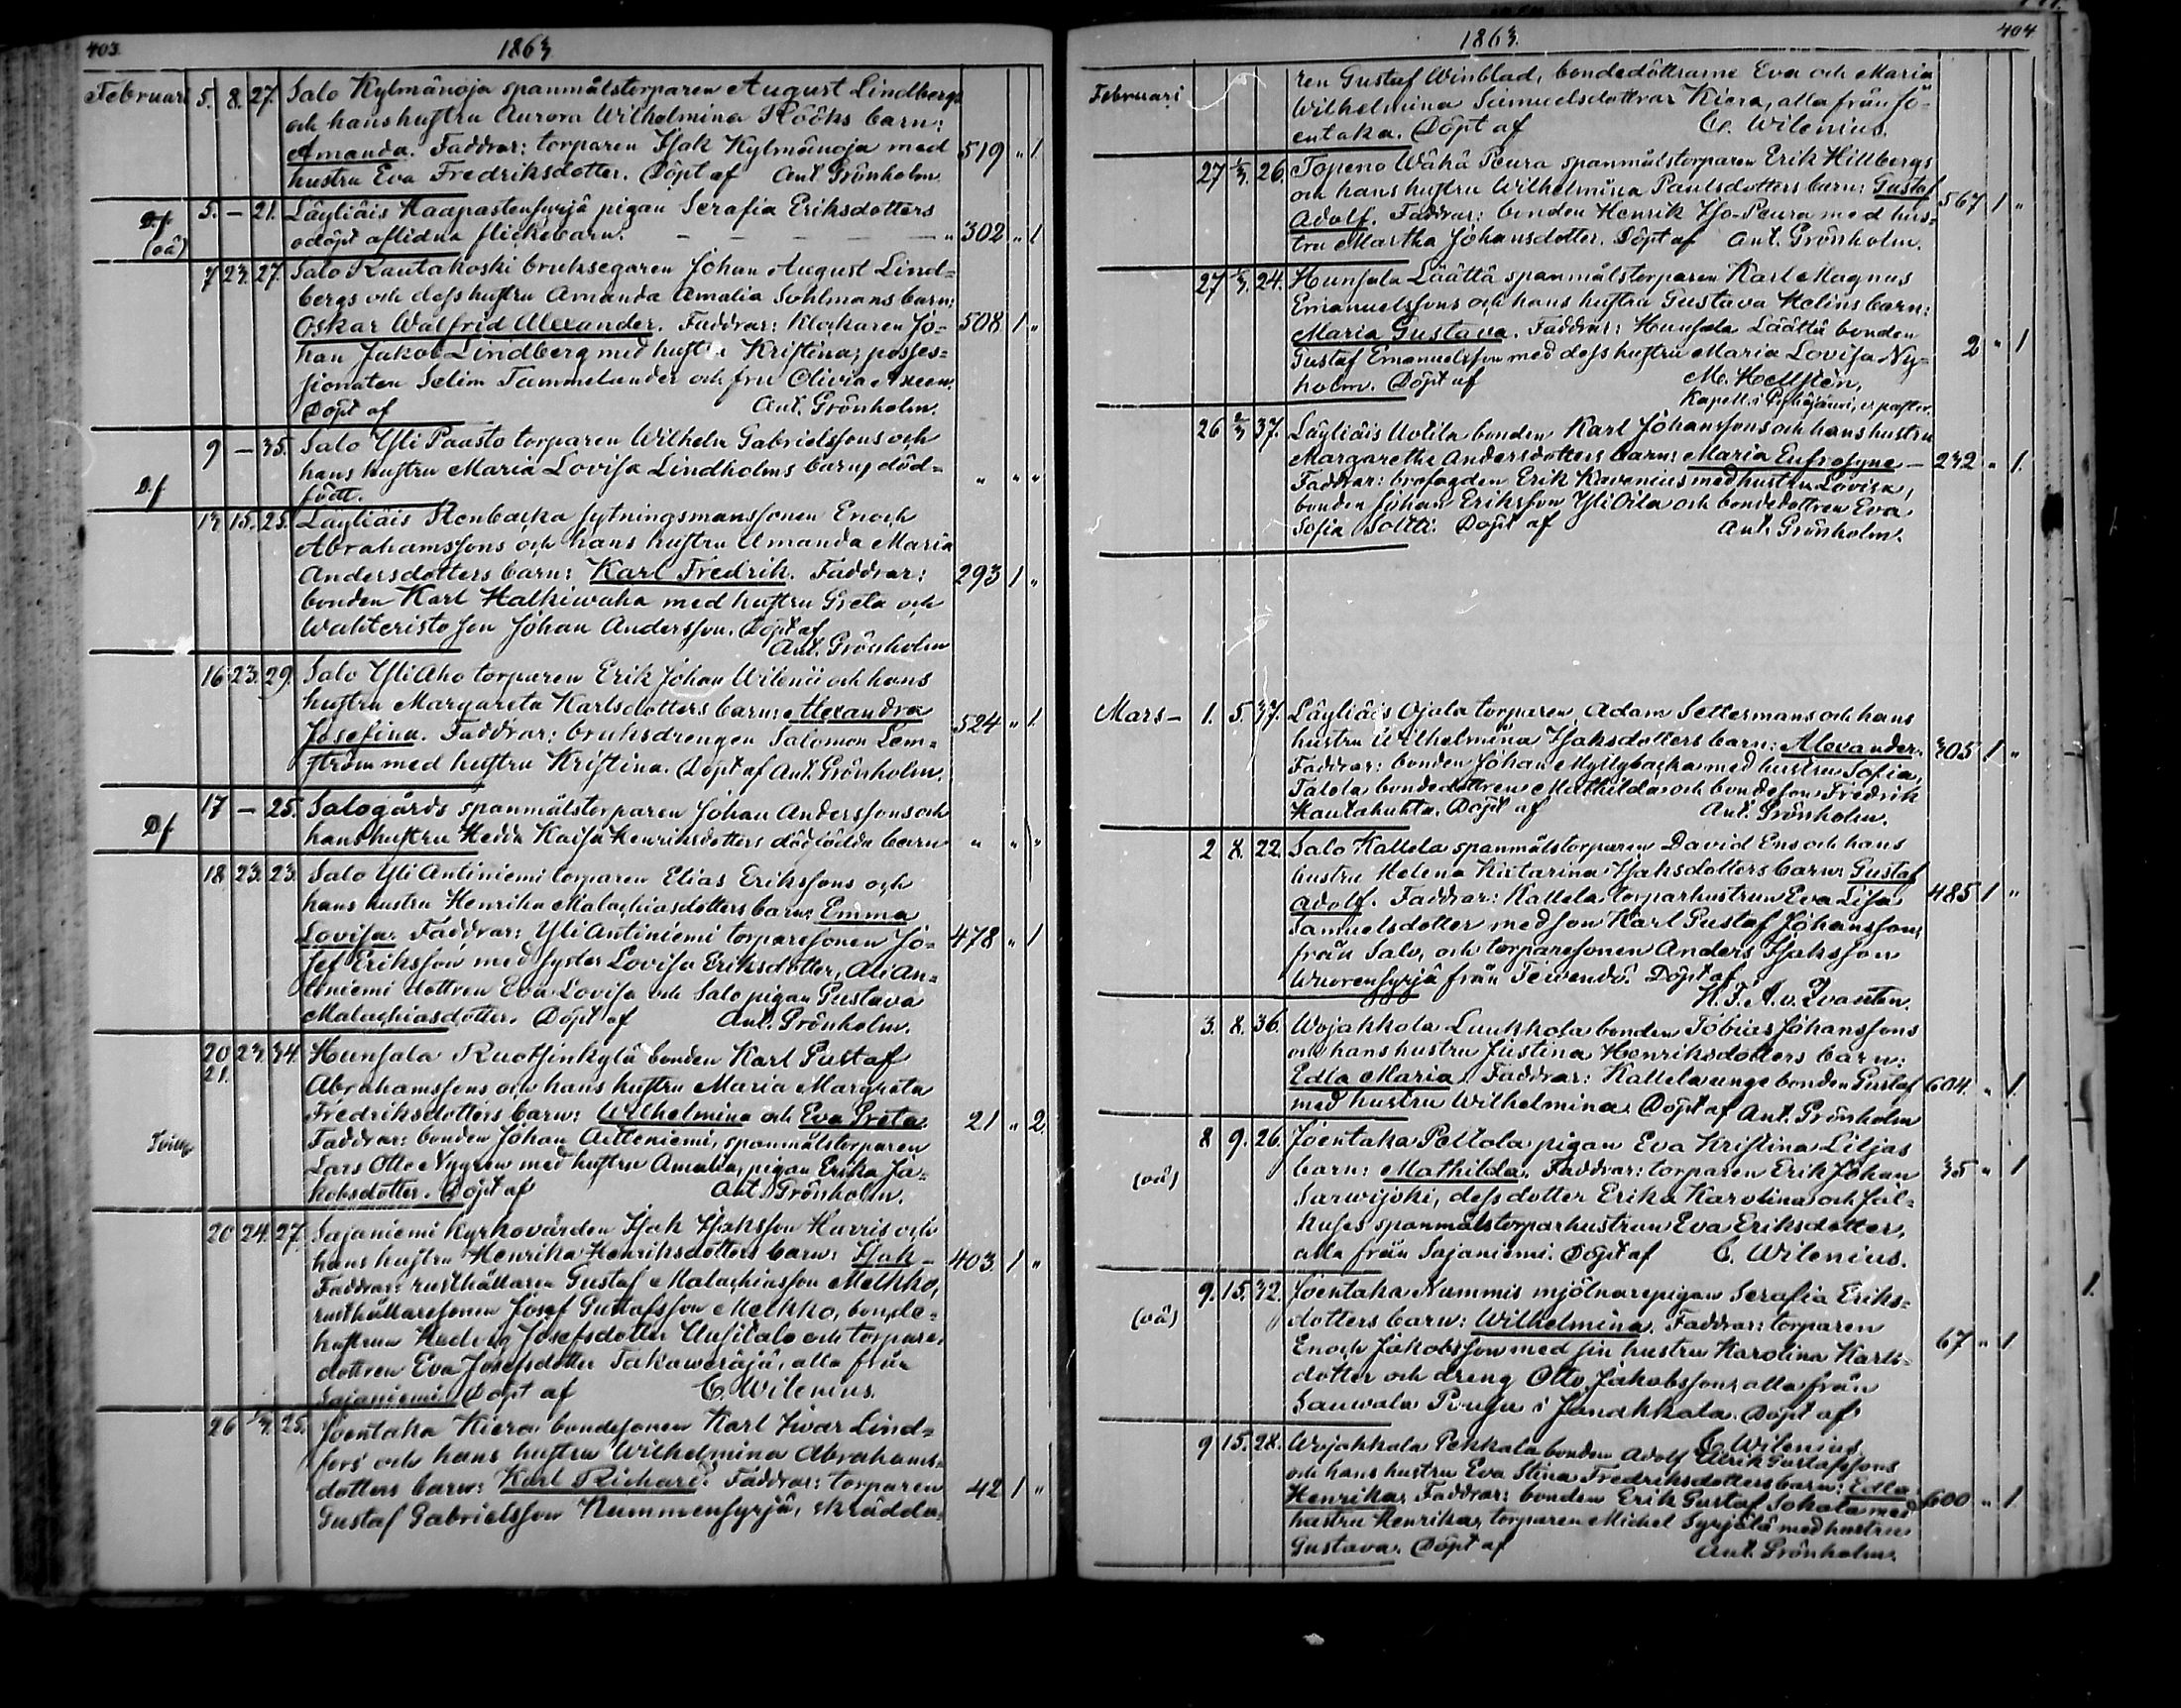 403.
1863
Februari 5. 8. 27. Salo Kylmänoja spanmålstorparen August Lindbergs
och hans hustru Aurora Wilhelmina Rööks barn:
Amanda. Faddrar: torparen Isak Kylmänoja med 519 " 1.
hustru Eva Fredriksdotter. Döpt af Ant. Grönholm.
D.f (oä) 5. — 21. Läyliäis Haapastensyrjä pigan Serafia Eriksdotters
odöpt aflidna flickebarn. — — — — — " 302 " 1
7 23. 27. Salo Rautakoski bruksegaren Johan August Lind=
bergs och dess hustru Amanda Amalia Sohlmans barn:
Oskar Walfrid Alexander. Faddrar: Klockaren Jo= 508 1 "
han Jakob Lindberg med hustru Kristina, posses=
sionaten Selim Tammelander och fru Olivia
Döpt af Ant. Grönholm.
9 — 35. Salo Yli Paasto torparen Wilhelm Gabrielssons och
D.f hans hustru Maria Lovisa Lindholms barn, död= " " "
född.
13. 15. 25. Läyliäis Stenbacka sytningsmanssonen Enoch
Abrahamssons och hans hustru Amanda Maria
Andersdotters barn: Karl Fredrik. Faddrar: 293 1 "
bonden Karl Halkiwaha med hustru Greta och
Wahteristo son Johan Andersson. Döpt af
Ant. Grönholm
16. 23. 29. Salo Yli Aho torparen Erik Johan Wilenii och hans
hustru Margareta Karlsdotters barn: Alexandra
Josefina. Faddrar: bruksdrengen Salomon Lem= 524 " 1.
ström med hustru Kristina. Döpt af Ant. Grönholm.
Df 17 — 25. Salogårds spanmålstorparen Johan Anderssons och
hans hustru Hedda Kaisa Henriksdotters dödfödda barn " " "
18. 23. 23. Salo Yli Antiniemi torparen Elias Erikssons och
hans hustru Henrika Malachiasdotters barn: Emma
Lovisa. Faddrar: Yli Antiniemi torparesonen Jo= 478 " 1
sef Eriksson med syster Lovisa Eriksdotter, Ali An=
tiniemi dottren Eva Lovisa och Salo pigan Gustava
Malachiasdotter. Döpt af Ant. Grönholm.
20 23. 34. Hunsala Ruotsinkylä bonden Karl Gustaf
21. Abrahamssons och hans hustru Maria Margreta
Fredriksdotters barn: Wilhelmina och Eva Greta. 21 " 2.
Faddrar: bonden Johan Aitteniemi, spanmålstorparen
Lars Otto Nygren med hustru Amalia, pigan Erika Ja=
kobsdotter. Döpt af Ant. Grönholm.
20 24. 27. Sajaniemi Kyrkovärden Isak Isaksson Harris och
hans hustru Henrika Henriksdotters barn: Isak — 403. 1 "
Faddrar: rusthållaren Gustaf Malachiasson Melkko,
rusthållaresonen Josef Gustafsson Melkko, bonde=
hustrun Hedvig Josefsdotter Uusitalo och torpare=
dottren Eva Josefsdotter Takaweräjä, alla från
Sajaniemi. Döpt af C. Wilenius.
26 1/3. 25. Joentaka Kiera bondesonen Karl Iwar Lind=
fors och hans hustru Wilhelmina Abrahams=
dotters barn: Karl Richard. Faddrar: torparen 42 1 "
Gustaf Gabrielsson Nummensyrjä, skrädda=
1863. 404
Februari ren Gustaf Winblad, bondedöttrarne Eva och Maria
Wilhelmina Samuelsdöttrar Kiera, alla från Jo=
entaka. Döpt af C. Wilenius.
27 1/3. 26. Topeno Wähä Peura spanmålstorparen Erik Hillbergs
och hans hustru Wilhelmina Paulsdotters barn: Gustaf 567 1 "
Adolf. Faddrar: bonden Henrik Iso-Peura med hus=
tru Martha Johansdotter. Döpt af Ant. Grönholm.
27 1/3. 24. Hunsala Läättä spanmålstorparen Karl Magnus
Emanuelssons och hans hustru Gustava Helins barn:
Maria Gustava. Faddrar: Hunsala Läättä bonden 2 " 1
Gustaf Emanuelsson med dess hustru Maria Lovisa Ny=
holm. Döpt af M. Hellstén,
Kapell. i Pyhäjärvi,
26 2/3 37. Läyliäis Uotila bonden Karl Johanssons och hans hustru
Margaretha Andersdotters barn: Maria Eufrosyne — 232 " 1.
Faddrar: brofogden Erik Kavenius med hustru Lovisa,
bonden Johan Eriksson Yli Oila och bondedottren Eva
Sofia Solttí. Döpt af Ant. Grönholm.
Mars — 1. 5. 37. Läyliäis Ojala torparen Adam Settermans och hans
hustru Wilhelmina Isaksdotters barn: Alexander. 305 1 "
Faddrar: bonden Johan Myllybacka med hustru Sofia,
Talola bondedottren Mathilda och bondeson Fredrik
Hautakulta. Döpt af Ant. Grönholm.
2 8. 22. Salo Kallela spanmålstorparen David Ens och hans
hustru Helena Katarina Isaksdotters barn: Gustaf
Adolf. Faddrar: Kallela torparhustrun Eva Lisa 485 1 "
Samuelsdotter med son Karl Gustaf Johansson,
från Salo, och torparesonen Anders Isaksson
Wuorensyrjä från Tewendö. Döpt af
H. F. A. v. Qvanten.
3. 8. 36. Wojakkola Luukkola bonden Tobias Johanssons
och hans hustru Justina Henriksdotters barn:
Edla Maria. Faddrar: Kallela unge bonden Gustaf 604. " 1.
med hustru Wilhelmina. Döpt af Ant. Grönholm
8 9. 26. Joentaka Peltola pigan Eva Kristina Liljas
(oä) barn: Mathilda. Faddrar: torparen Erik Johan 35 " 1
Sarwijoki, dess dotter Erika Karolina och Jäl=
kuses spanmålstorparhustrun Eva Eriksdotter,
alla från Sajaniemi. Döpt af C. Wilenius.
9. 15. 32. Joentaka Nummis mjölnarepigan Serafia Eriks=
(oä) dotters barn: Wilhelmina. Faddrar: torparen
Enoch Jakobsson med sin hustru Karolina Karls= 67 " 1
dotter och dreng Otto Jakobsson, alla från
Sauwala Puuja i Janakkala. Döpt af
C. Wilenius
9 15. 28. Wojakkala Pekkala bonden Adolf Ulrik Gustafssons
och hans hustru Eva Stina Fredriksdotters barn: Edla
Henrika. Faddrar: bonden Erik Gustaf Sokala med 600 " 1.
hustru Henrika, torparen Michel Syrjälä med hustru
Gustava. Döpt af Ant. Grönholm.